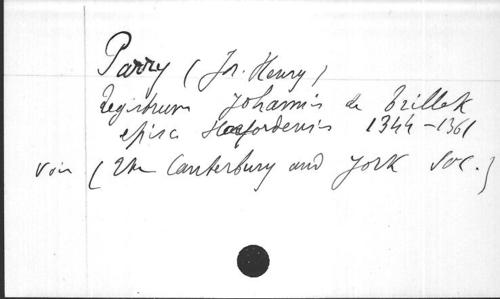 Parry (Jn. Henry)
Registrum Johannis de Trillek
episc Herefordensis 1344-1361
voir (The Canterbury and York Soc.)